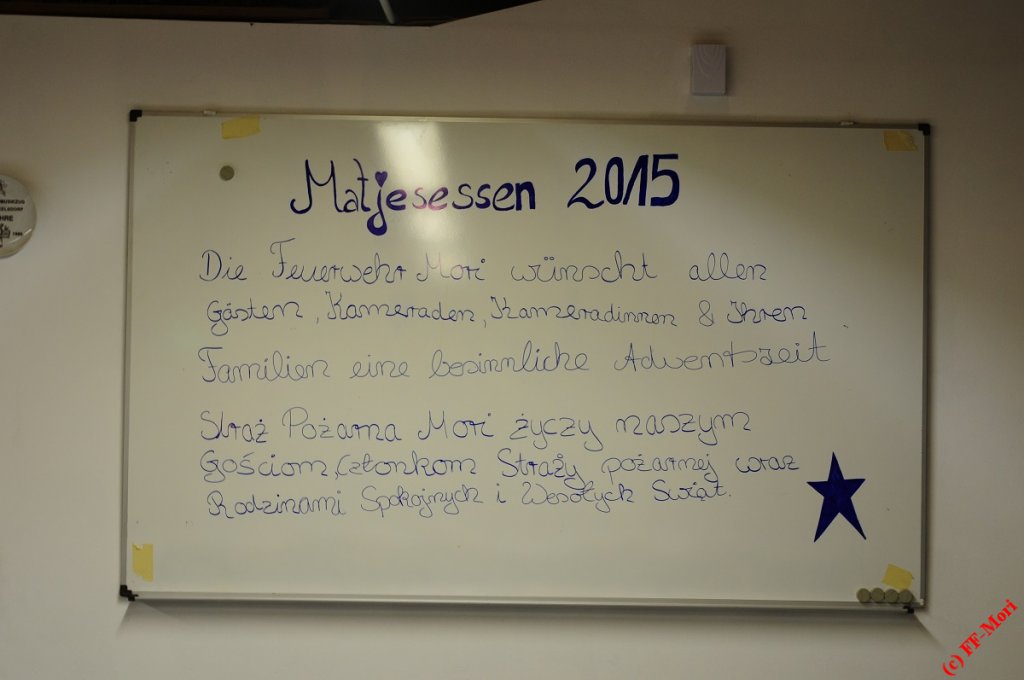 Matjesessen 2015
Die Feuerwehr Mori wünscht allen
Gästen, Kameraden, Kameradinnen & Ihren
Familien eine besinnliche Adventszeit
Straż Pożarna Mori życzy naszym
Gościom, Członkom Straży pożarnej wraz
Rodzinami Spokojnych i Wesołych Swiąt.
HRE
(c) FF-Mori